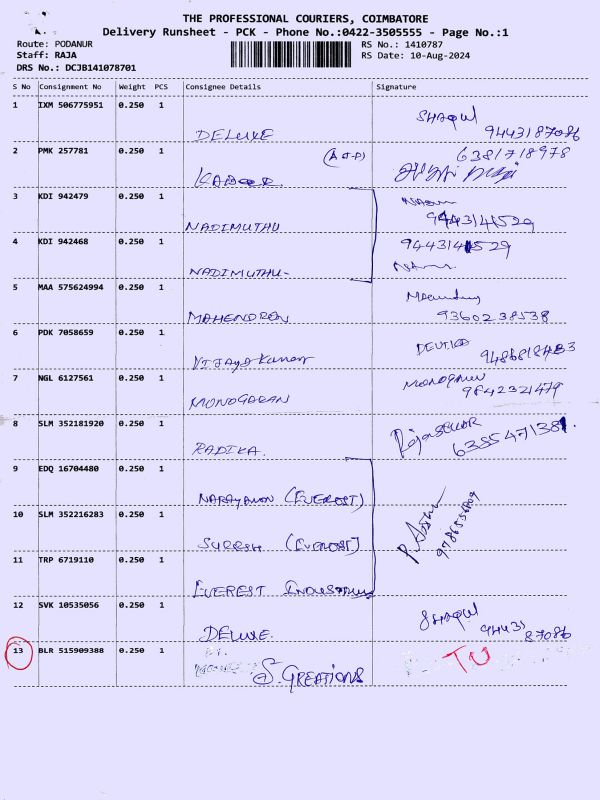 THE PROFESSIONAL COURIERS, COIMBATORE
Delivery Runsheet - PCK - Phone No.:0422-3505555 - Page No.:1
Route: PODANUR RS No.: 1410787
Staff: RAJA RS Date: 10-Aug-2024
DRS No.: DCJB141078701
S No Consignment No Weight PCS Consignee Details Signature
1 IXM 506775951 0.250 1 DELUXE SHAQUL
9443187086
2 PMK 257781 0.250 1 KABEER 6381718978
3 KDI 942479 0.250 1 NADIMUTHU 9443141529
4 KDI 942468 0.250 1 NADIMUTHU- 9443141529
5 MAA 575624994 0.250 1 MAHENDREN
9360238538
6 PDK 7058659 0.250 1 VIJAYAKUMAR
7 NGL 6127561 0.250 1 MONOGARAN
9842321479
8 SLM 352181920 0.250 1 RADIKA. RAJASEKAR
9 EDQ 16704480 0.250 1 NARAYANAN (EVEREST)
10 SLM 352216283 0.250 1 SURESH (EVEREST)
11 TRP 6719110 0.250 1 EVEREST INDUSTRIES
12 SVK 10535056 0.250 1 DELUXE. SHAQUL
94431
87086
13 BLR 515909388 0.250 1 S. CREATIONS TU